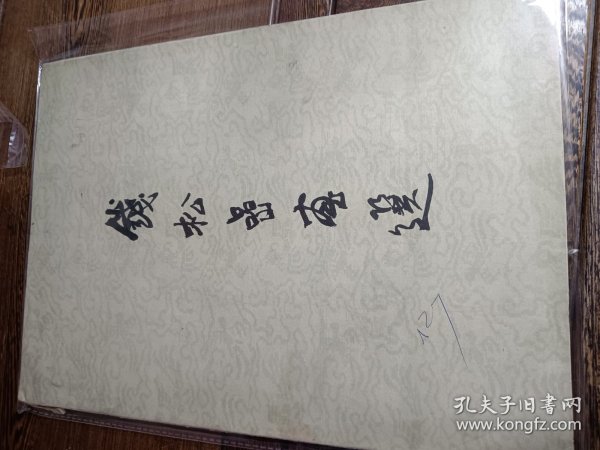 錢松嵒畫選
127
孔夫子旧書网
www.kongfz.com